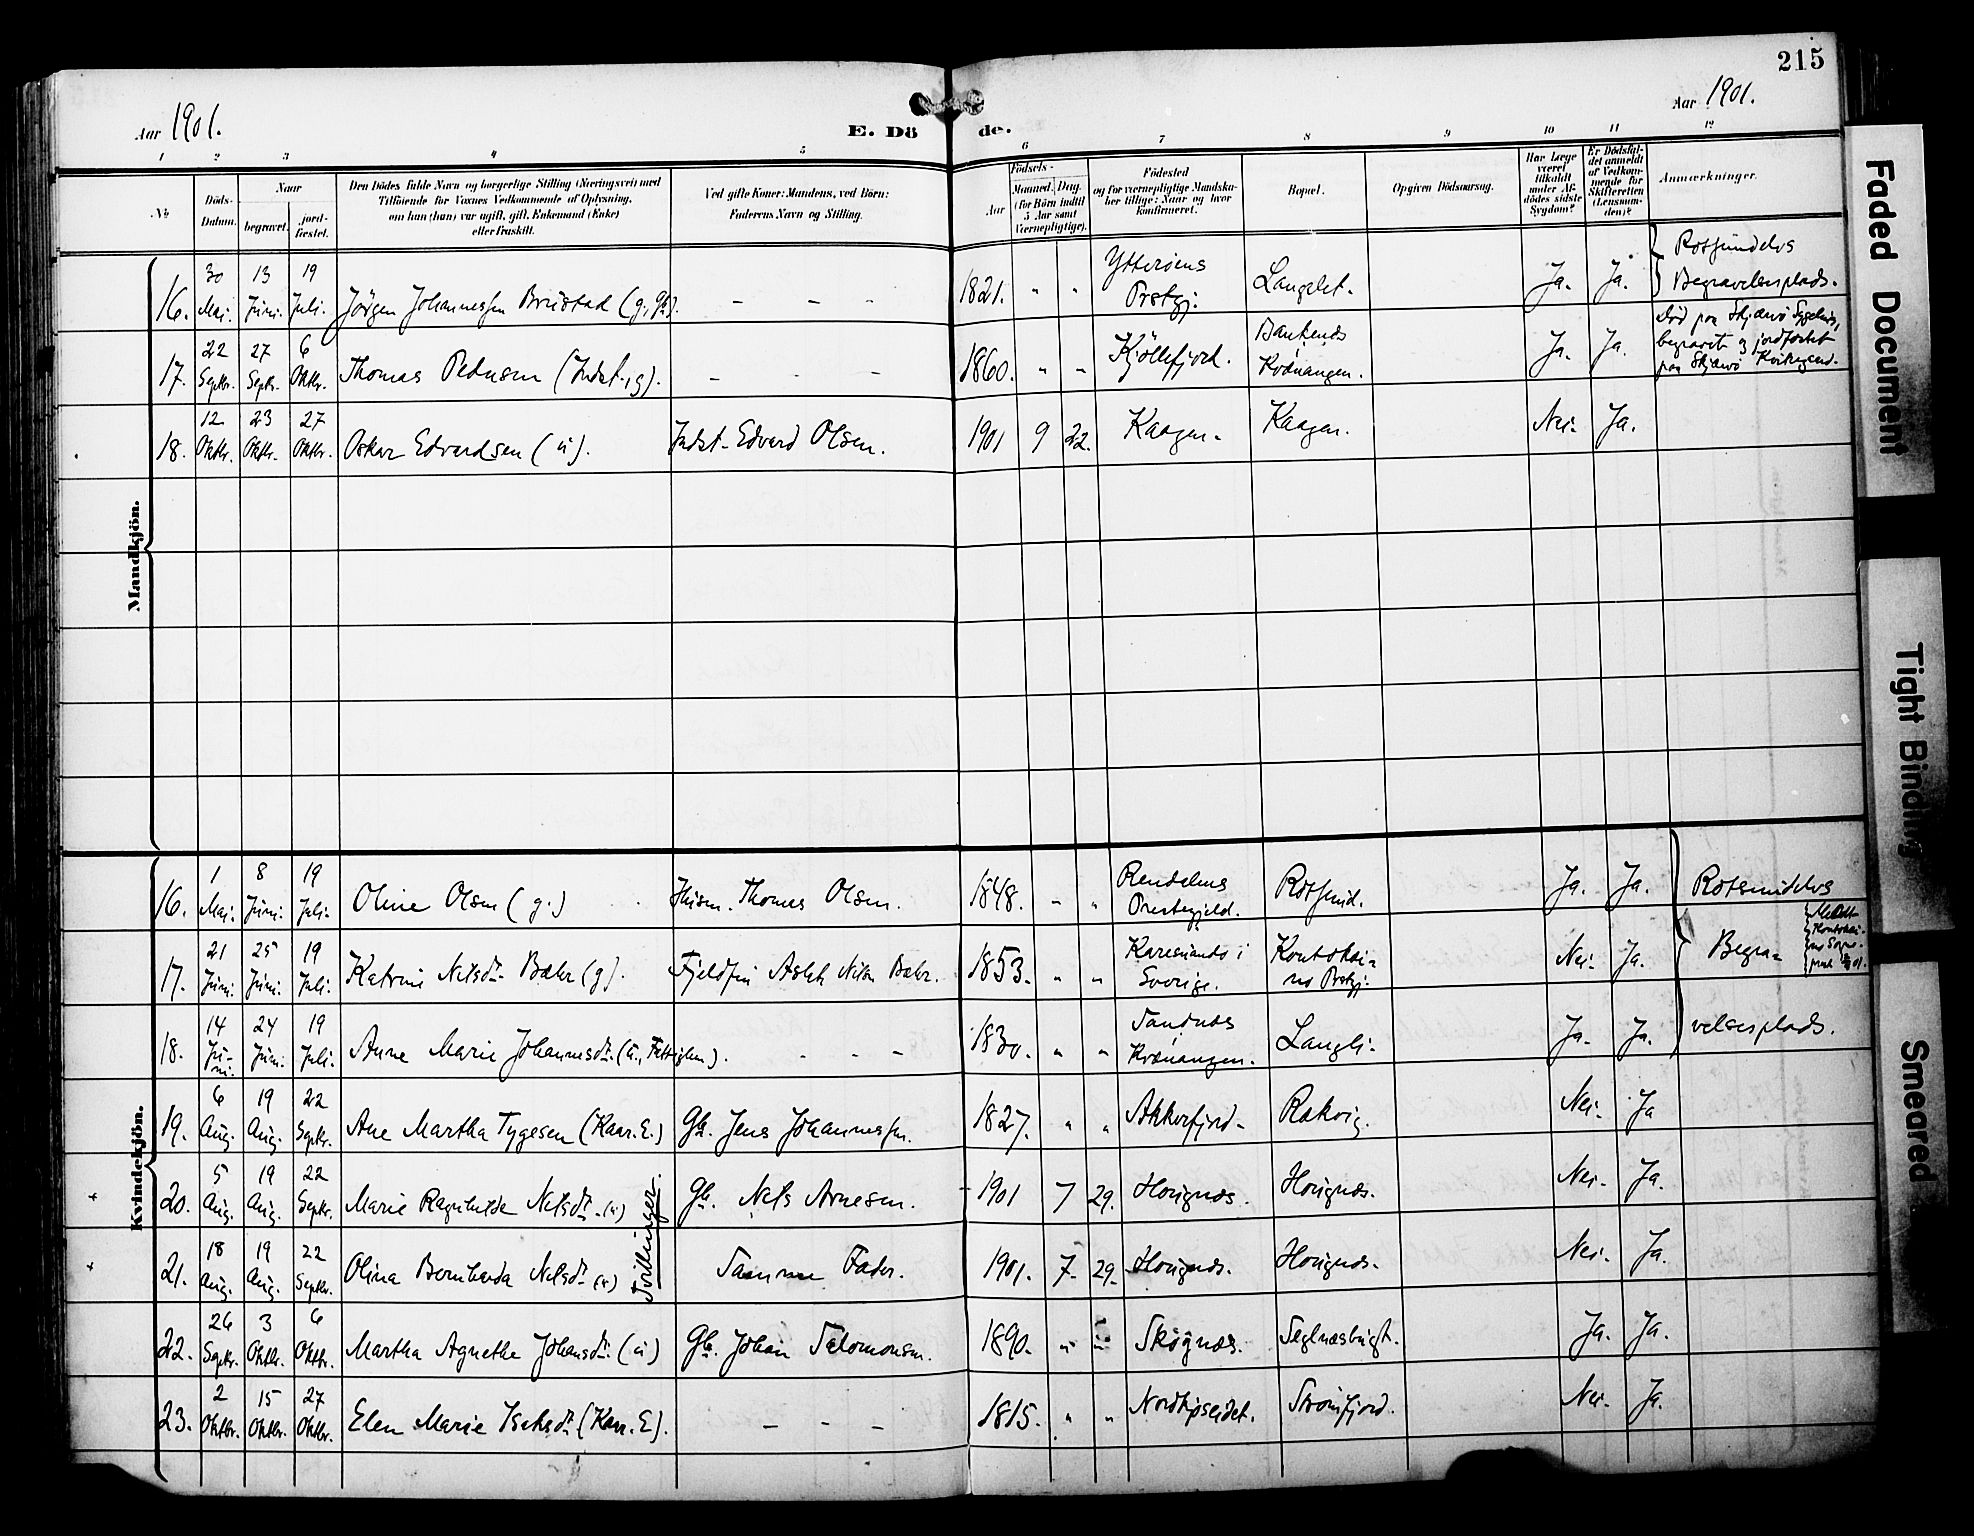 215
Aar 1901.
E. Dö de.
Aar 1901.
1 2 3 4 5 6 7 8 9 10 11 12
No.
Döds-Datum.
Naar
begravet.
jord-fæstet.
Den Dödes fulde Navn og borgerlige Stilling (Næringsvei) med
Tilföiende for Voxnes Vedkommende af Oplysning,
om han (hun) var ugift, gift, Enkemand (Enke)
eller fraskilt.
Ved gifte Koner: Mandens, ved Börn:
Faderens Navn og Stilling.
Födsels-
Aar
Maaned. Dag.
(for Börn indtil
5 Aar samt
Værnepligtige).
Födested
og for værnepligtige Mandska-
ber tillige: Naar og hvor
konfirmeret.
Bopæl.
Opgiven Dödsaarsag.
Har Læge
været
tilkaldt
under Af-
dödes sidste
Sygdom?
Er Dödsfal-
det anmeldt
af Vedkom-
mende for
Skifteretten
(Lensman-
den)?
Anmærkninger.
Mandkjön.
16. 30 Mai. 13 Juni. 19 Juli. Jörgen Johannessen Brustad (g, Gb). – – – 1821. " " Ytterøens Prstgj. Langslet. Ja. Ja. Rotsundelvs Begravelsesplads.
17. 22 Septbr. 27 Septbr. 6 Oktbr. Thomas Pedersen (Indst., g). – – – 1860. " " Kjøllefjord. Kvænangen. Ja. Ja. Død paa Skjærvø Sygehus, begravet og jordfæstet paa Skjærvø Kirkegaard.
18. 12 Oktbr. 23 Oktbr. 27 Oktbr. Oskar Edvardsen (u). Indst. Edvard Olsen. 1901 9 22. Kaagen. Kaagen. Nei. Ja.
Kvindekjön.
16. 1 Mai. 8 Juni. 19 Juli. Oline Olsen (g.) Husm. Thomas Olsen. 1848. " " Rendalens Prestegjeld. Rotsund. Ja. Ja. Rotsundelvs
17. 21 Juni. 25 Juni. 19 Juli. Katrine Nilsdr. Bæhr (g). Fjeldfin Aslak Nilsen Bæhr. 1853. " " Karesuando i Sverige. Koutokei-no Prstgj. Nei. Ja. Begra-
18. 14 Ju-ni. 24 Juni. 19 Juli. Anne Marie Johannesdr. (u., Fattiglem). – – – 1830. " " Sandnes Kvænangen. Langli. Ja. Ja. velsesplads.
19. 6 Aug. 19 Aug. 22 Septbr. Ane Martha Tygesen (Kaar. E.) Gb. Jens Johannessen. 1827. " " Akkarfjord. Rakvig. Nei. Ja
20. 5 Aug. 19 Aug. 22 Septbr. Marie Ragnhilda Nilsdr. (u) Gb. Nils Arnesen. 1901 7 29. Hougnæs. Hougnæs. Nei. Ja.
Tvillinger.
21. 18 Aug. 19 Aug. 22 Septbr. Olina Bernharda Nilsdr. (u) Samme Fader. 1901. 7 29. Hougnæs. Hougnæs. Nei. Ja.
22. 26 Septbr. 3 Oktbr. 6 Oktbr. Martha Agnethe Johansdr. (u) Gb. Johan Salomonsen. 1890. " " Skognæs. Seglnæsbugt. Ja. Ja.
23. 2 Oktbr. 15 Oktbr. 27 Oktbr. Elen Marie Isaksdr. (Kaar. E). – – – 1815. " " Nordkjoseidet. Straumfjord. Nei. Ja.
Faded Document
Tight Binding
Smeared